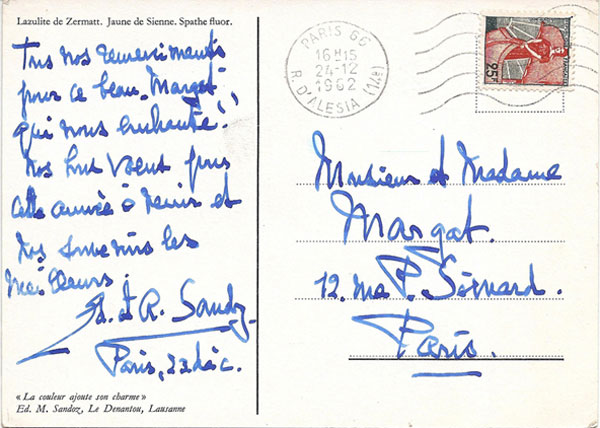 Lazulite de Zermatt. Jaune de Sienne. Spathe fluor.
Tous nos remerciments
pour ce beau "Margat"
qui nous enchante!
Nos bons voeux pour
cette année à venir et
nos souvenirs les
meilleurs.
Ed. et R. Sandoz
Paris, 22 déc.
« La couleur ajoute son charme »
Ed. M. Sandoz, Le Denantou, Lausanne
PARIS
16H15
24-12
1962
R. D'ALESIA (14e)
25F
Monsieur et Madame
Margat.
12. rue P.
Paris.